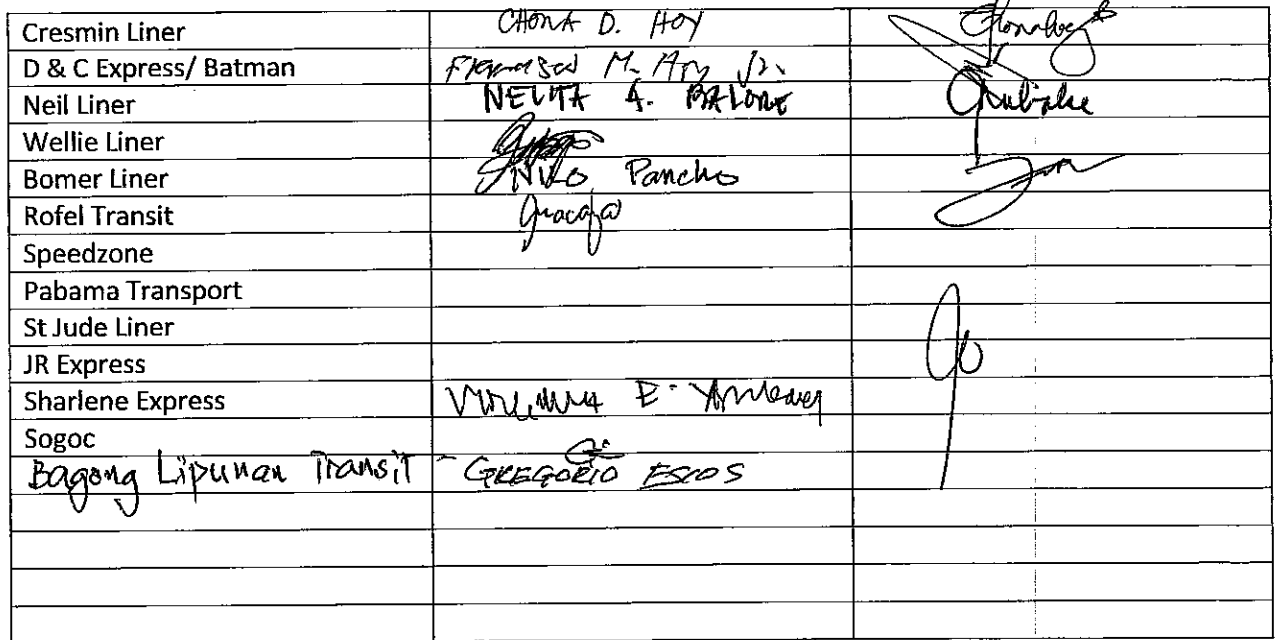 Cresmin Liner CHONA D. HOY
D & C Express/ Batman M. Jr.
Neil Liner NELITA A. BALONE
Wellie Liner
Bomer Liner Nilo Pancho
Rofel Transit
Speedzone
Pabama Transport
St Jude Liner
JR Express
Sharlene Express E.
Sogoc
Bagong Lipunan Transit - GREGORIO ESCOS